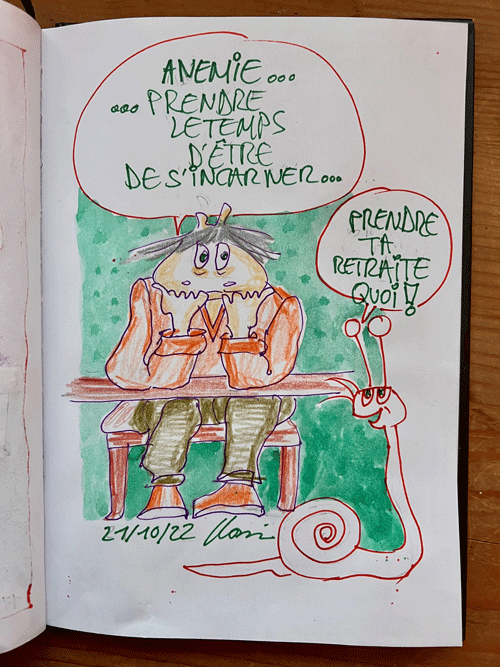 ANEMIE...
...PRENDRE
LE TEMPS
D'ÊTRE
DE S'INCARNER...
PRENDRE
TA
RETRAITE
QUOI!
21/10/22